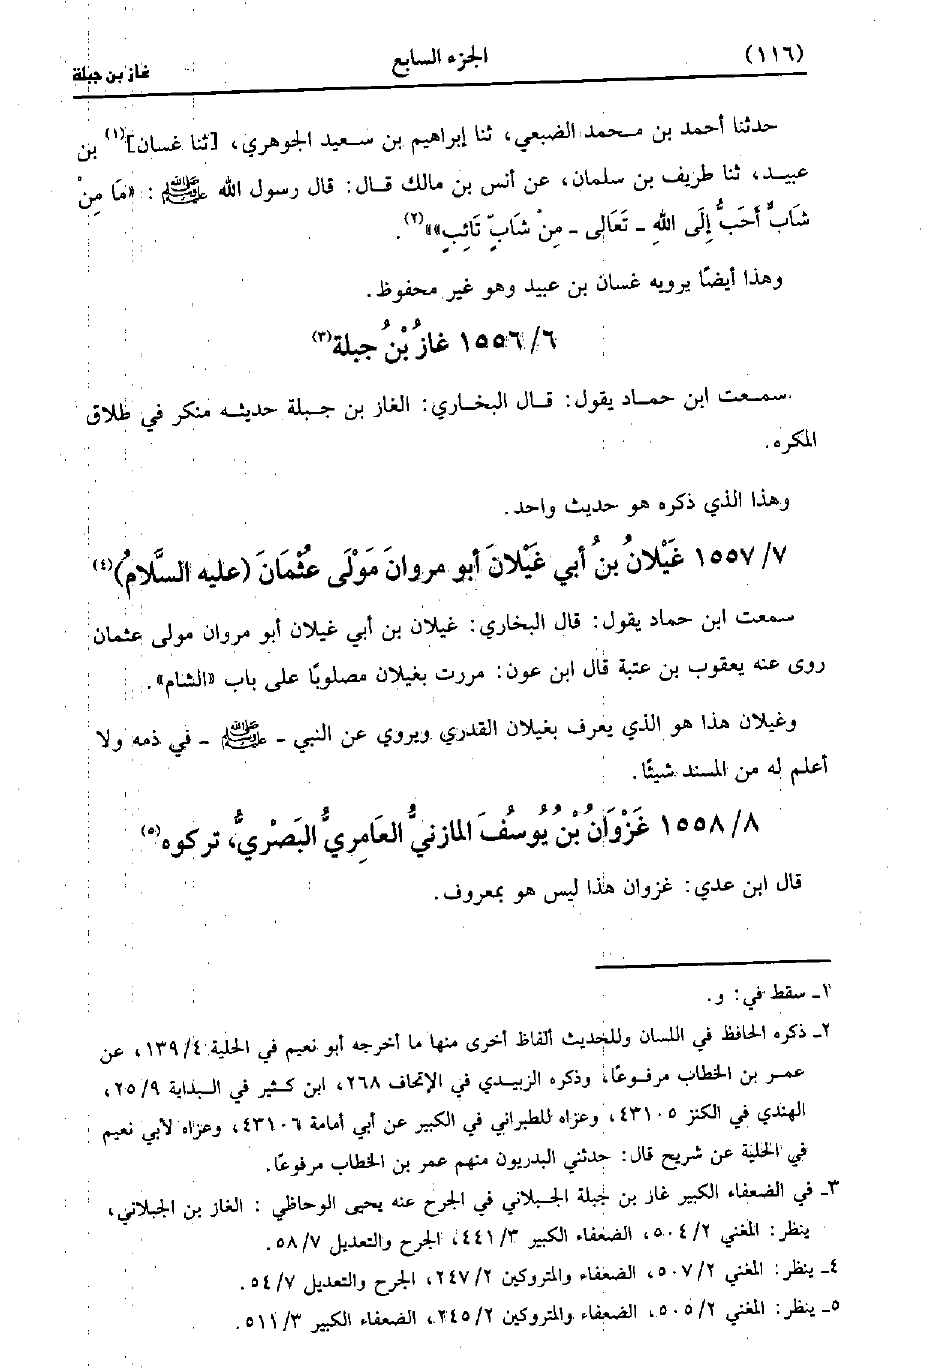 (١١٦) الجزء السابع غاز بن جبلة
حدثنا أحمد بن محمد الضبعي، ثنا إبراهيم بن سعيد الجوهري، [ثنا غسان](١) بن
عبيد، ثنا طريف بن سلمان، عن أنس بن مالك قال: قال رسول الله ﷺ: «مَا مِنْ
شَابٍّ أَحَبُّ إِلَى اللهِ ـ تَعَالى ـ مِنْ شَابٍّ تَائِبٍ»»(٢).
وهذا أيضًا يرويه غسان بن عبيد وهو غير محفوظ.
١٥٥٦/٦ غَازُ بْنُ جبلة(٣)
سمعت ابن حماد يقول: قال البخاري: الغاز بن جبلة حديثه منكر في طلاق
المكره.
وهذا الذي ذكره هو حديث واحد.
١٥٥٧/٧ غَيْلانُ بنُ أبي غَيْلانَ أبو مروانَ مَوْلَى عثْمَانَ (عليه السَّلامُ)(٤)
سمعت ابن حماد يقول: قال البخاري: غيلان بن أبي غيلان أبو مروان مولى عثمان
روى عنه يعقوب بن عتبة قال ابن عون: مررت بغيلان مصلوبًا على باب «الشام».
وغيلان هذا هو الذي يعرف بغيلان القدري ويروي عن النبي ـ ﷺ ـ في ذمه ولا
أعلم له من المسند شيئًا.
١٥٥٨/٨ غَزْوَانُ بْنُ يُوسُفَ المازنيُّ العَامِريُّ البَصْريُّ، تركوه(٥)
قال ابن عدي: غزوان هذا ليس هو بمعروف.
١ـ سقط في: و.
٢ـ ذكره الحافظ في اللسان وللحديث ألفاظ أخرى منها ما أخرجه أبو نعيم في الحلية ١٣٩/٤، عن
عمر بن الخطاب مرفوعًا، وذكره الزبيدي في الإتحاف ٢٦٨، ابن كثير في البداية ٢٥/٩،
الهندي في الكنز ٤٣١٠٥، وعزاه للطبراني في الكبير عن أبي أمامة ٤٣١٠٦، وعزاه لأبي نعيم
في الحلية عن شريح قال: حدثني البدريون منهم عمر بن الخطاب مرفوعًا.
٣ـ في الضعفاء الكبير غاز بن جبلة الجبلاني في الجرح عنه يحيى الوحاظي : الغاز بن الجبلاني،
ينظر: المغني ٥٠٤/٢، الضعفاء الكبير ٤٤١/٣، الجرح والتعديل ٥٨/٧.
٤ـ ينظر: المغني ٥٠٧/٢، الضعفاء والمتروكين ٢٤٧/٢، الجرح والتعديل ٥٤/٧.
٥ـ ينظر: المغني ٥٠٥/٢، الضعفاء والمتروكين ٢٤٥/٢، الضعفاء الكبير ٥١١/٣.